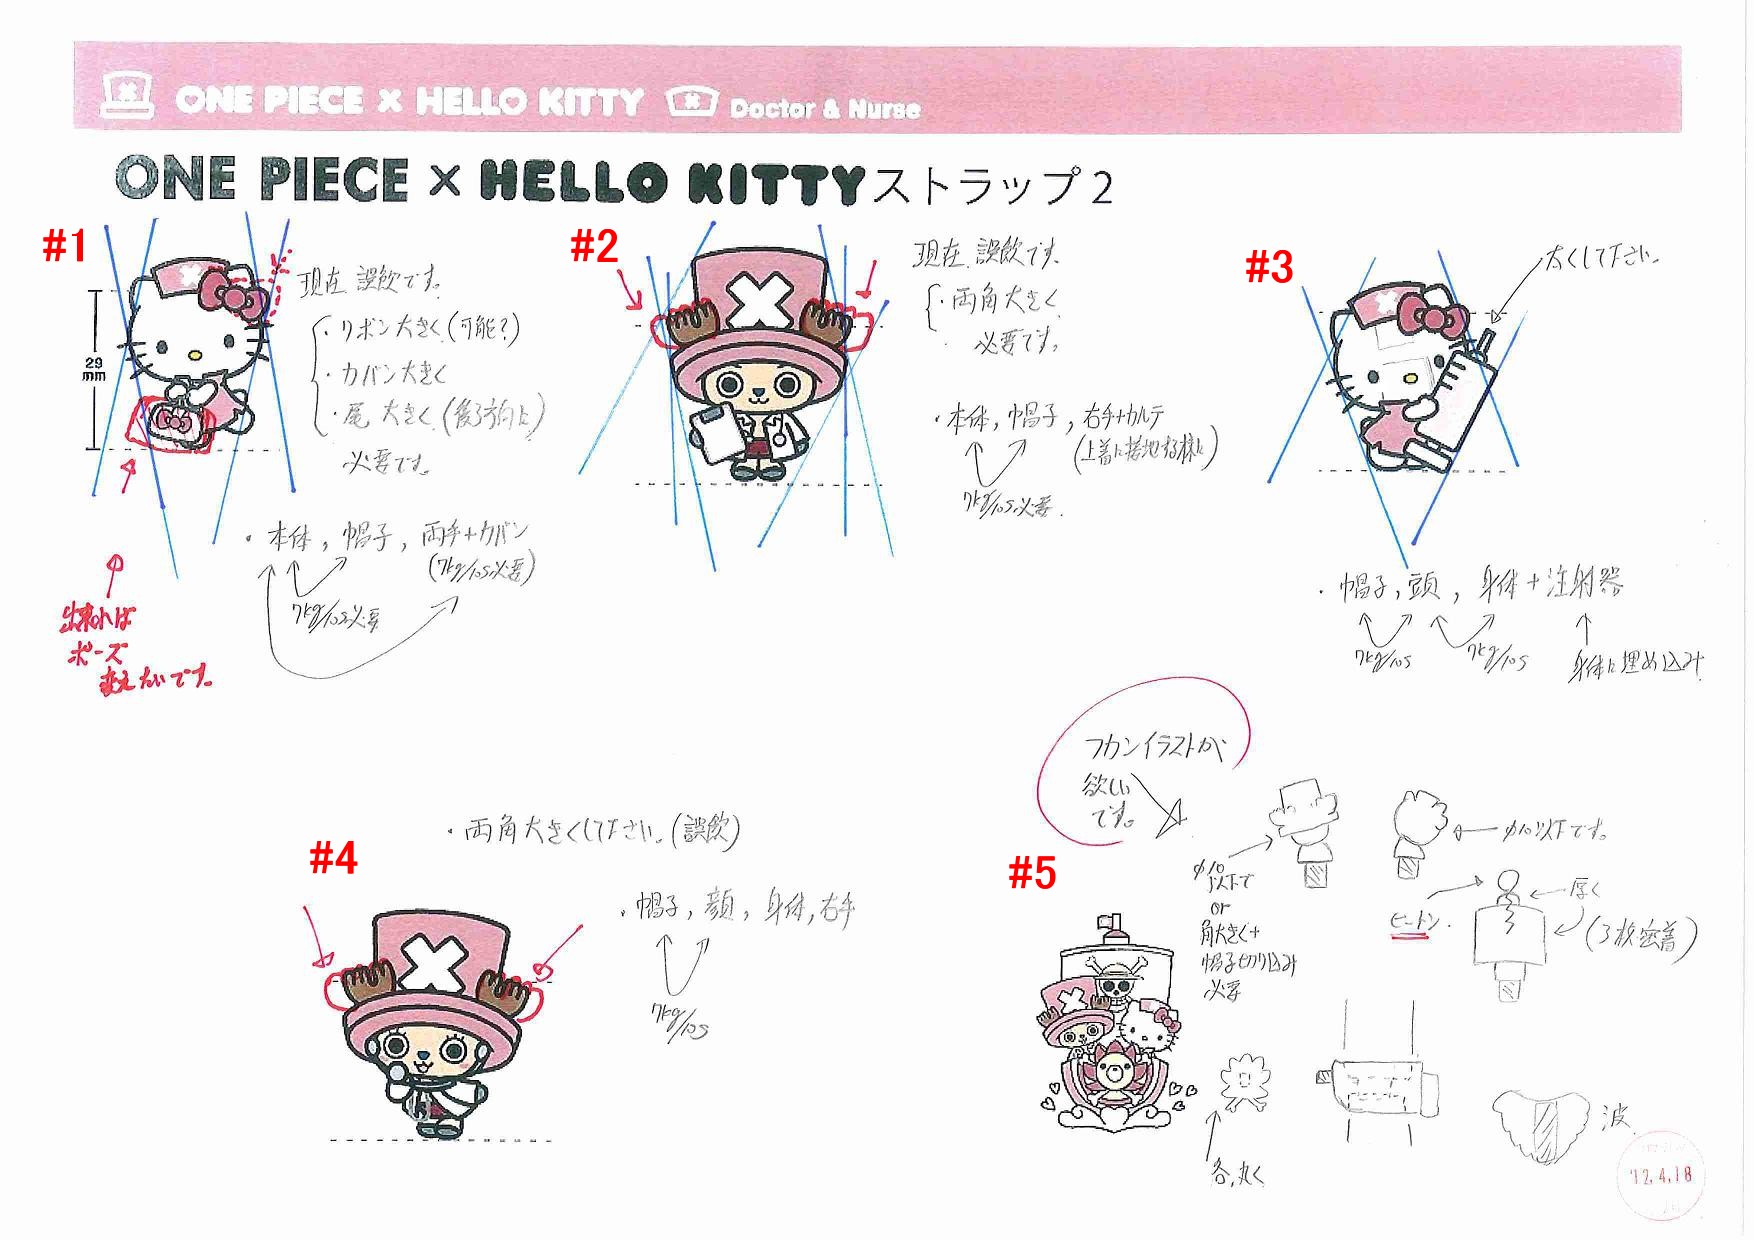 ONE PIECE × HELLO KITTY Doctor & Nurse
ONE PIECE × HELLO KITTYストラップ2
#1
29
mm
現在 誤飲です。
・リボン大きく(可能?)
・カバン大きく
・尾 大きく(後ろ方向に)
必要です。
・本体, 帽子, 両手+カバン
(7kg/10s必要)
7kg/10s必要
出来れば
ポーズ
変えたいです。
#2
現在 誤飲です。
・両角大きく
必要です。
・本体, 帽子, 右手+カルテ
(上着に接地する様に)
7kg/10s必要
#3
太くして下さい。
・帽子, 頭, 身体+注射器
7kg/10s
7kg/10s
身体に埋め込み
#4
・両角大きくして下さい。(誤飲)
・帽子, 顔, 身体, 右手
7kg/10s
#5
フカンイラストが
欲しい
です。
φ10
以下で
or
角大きく+
帽子切り込み
必要
φ10以下です。
ヒートン.
厚く
(3枚密着)
各,丸く
波
'12.4.18